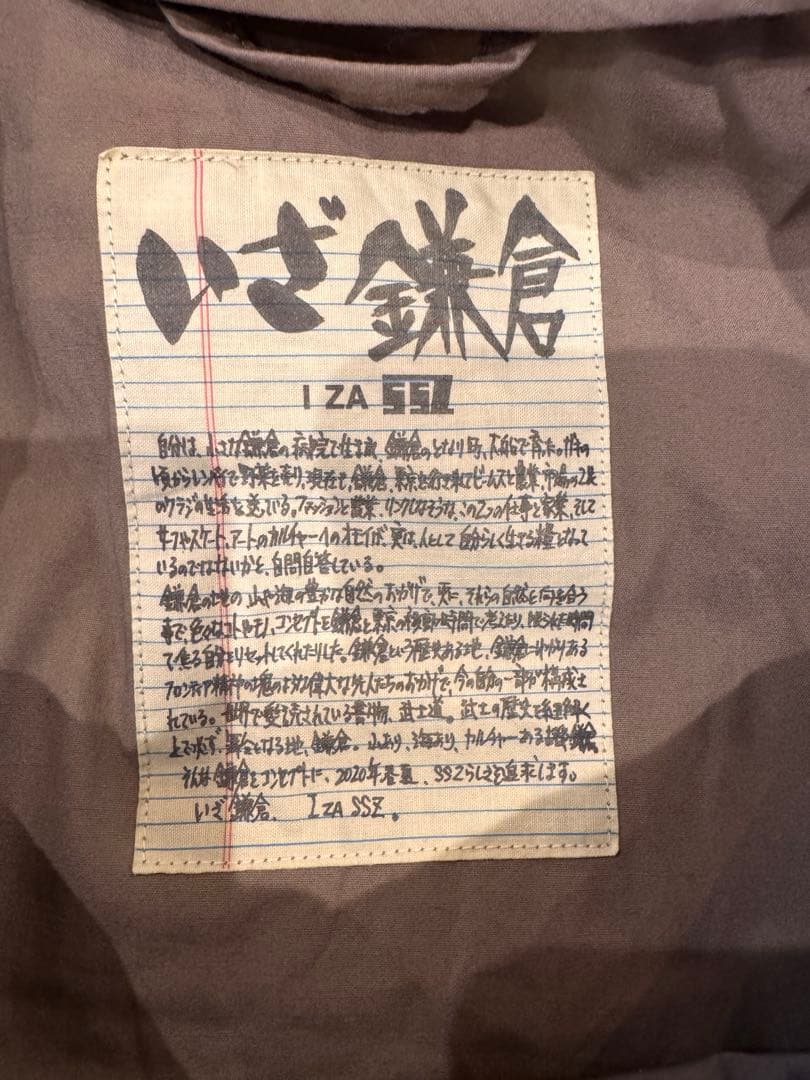 いざ鎌倉
I ZA SSZ
自分は、小さな鎌倉の病院で生まれ、鎌倉のとなり町、大船で育った。
頃からレンバイで野菜を売り、現在も、鎌倉、東京を行き来してビームスと農業、
のクラシの生活を送っている。ファッションと農業、リンクしなそうな、この2つの仕事と家業、そして
サーフやスケート、アートのカルチャーへの が、実は、人として自分らしく生きる糧となって
いるのではないかと、自問自答している。
鎌倉の地の山や海の豊かな自然のおかげで、 それらの自然と向き合う
事で、色々なコトやモノ、コンセプトを鎌倉と東京の移動時間で考えたり、限られた時間
で焦る自分をリセットしてくれたりした。鎌倉という歴史ある地、鎌倉にゆかりある
フロンティア精神の塊のような偉大な先人たちのおかげで、今の自分の一部が構成さ
れている。世界で愛読されている書物、武士道。武士の歴史を紐解く
上で必ず、 となる地、鎌倉。山あり、海あり、カルチャーある 鎌倉
そんな鎌倉をコンセプトに、2020年春夏、SSZらしさを追求します。
いざ鎌倉、 I ZA SSZ。